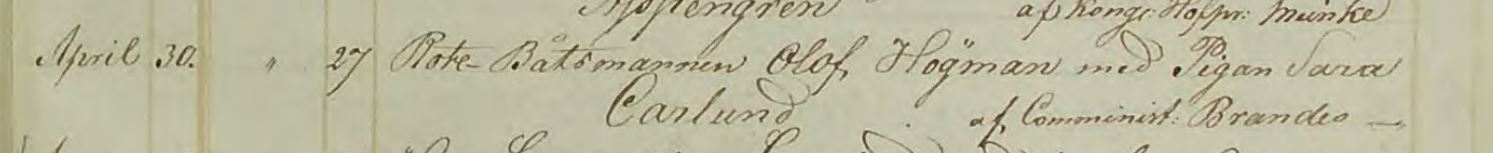 af Kongl: Hofpr: Munke
April 30. " 27 Rote-Båtsmannen Olof Högman med Pigan Sara
Carlund af Comminist: Brandes —